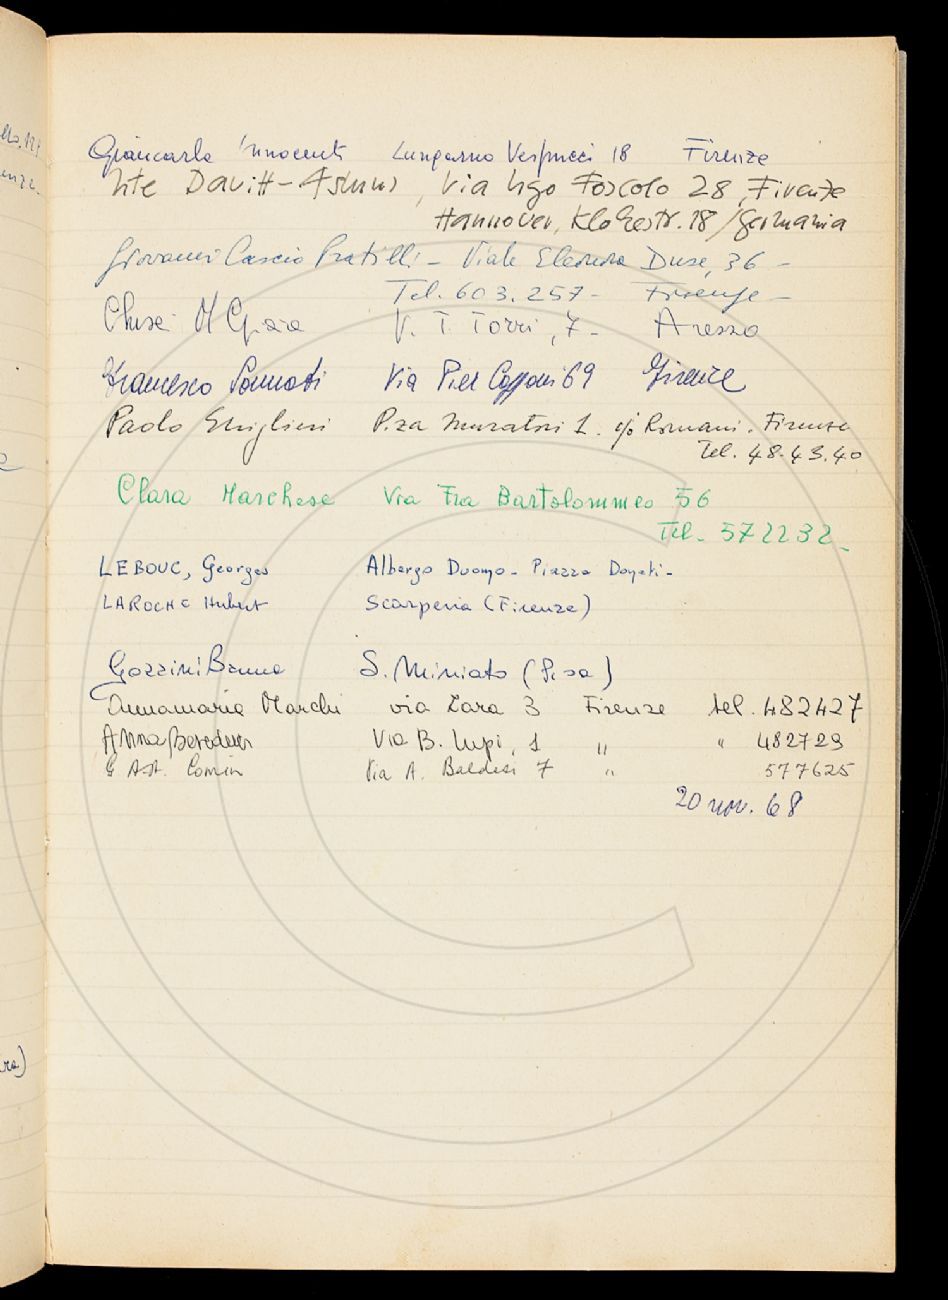 Giancarlo Innocenti Lungarno Vespucci 18 Firenze
Ute Davitt-Asmus, Via Ugo Foscolo 28, Firenze
Hannover, Klo str. 18/Germania
Giovanni Cascio Pratilli - Viale Eleonora Duse, 36 -
Tel. 603.257 - Firenze -
M Grazia V. T. Torri, 7 - Arezzo
Francesco Via Pier Capponi 69 Firenze
Paolo Ghiglieri P.za Muratori 1. c/o Romani. Firenze
Tel. 48.43.40
Clara Marchese Via Fra Bartolommeo 56
Tel. 572232 -
LEBOUC, Georges Albergo Duomo - Piazza -
LAROCHE Hubert Scarperia (Firenze)
Gozzini Bruno S. Miniato (Pisa)
Annamaria Marchi via Zara 3 Firenze tel. 482427
Anna Via B. Lupi, 1 " " 482729
Via A. Baldesi 7 " 577625
20 nov. 68